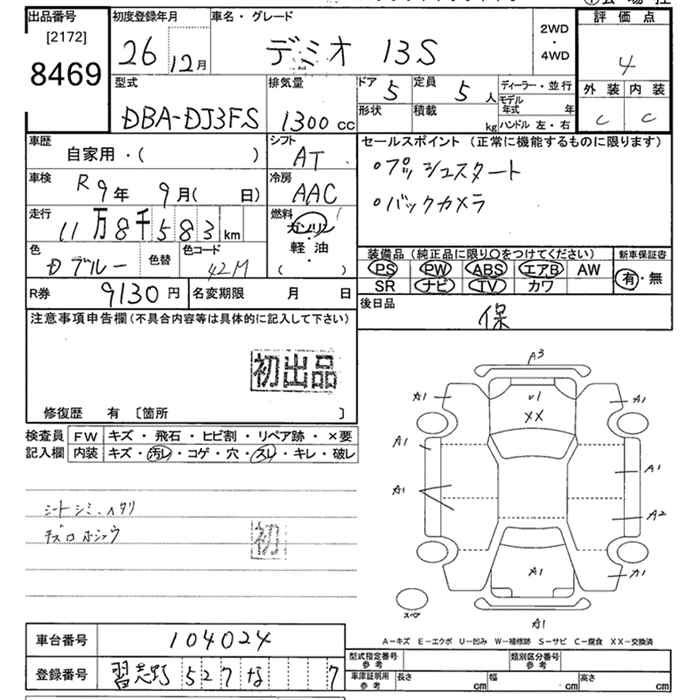 出品番号 初度登録年月 車名・グレード 2WD・4WD 評価点
[2172]
8469 26 12月 デミオ 13S 4
型式 排気量 ドア 5 定員 5人 ディーラー・並行 外装 内装
DBA-DJ3FS 1300cc 形状 積載 kg モデル年式 年 C C
ハンドル 左・右
車歴 シフト セールスポイント (正常に機能するものに限ります)
自家用・( ) AT ・プッシュスタート
車検 R9年 9月( 日) 冷房 AAC ・バックカメラ
走行 11万8千583km 燃料 ガソリン
軽・油
( )
色 Dブルー 色替 色コード 42M
装備品 (純正品に限り○をつけてください) 新車保証書
PS PW ABS エアB AW 有・無
SR ナビ TV カワ
R券 9130円 名変期限 月 日 後日品
保
注意事項申告欄(不具合内容等は具体的に記入して下さい)
初出品
修復歴 有 〔箇所 〕
検査員 FW キズ・飛石・ヒビ割・リペア跡・×要
記入欄 内装 キズ・汚レ・コゲ・穴・スレ・キレ・破レ
シートシミ、ヘタリ
初
A3
A1 A1
XX
A1
A1 A1
A2
A1 A1
スペア
A1
A-キズ E-エクボ U-凹み W-補修跡 S-サビ C-腐食 XX-交換済
車台番号 104024 型式指定番号 参考 類別区分番号 参考
登録番号 習志野 527 な 7 車庫証明用 参考 長さ cm 幅 cm 高さ cm